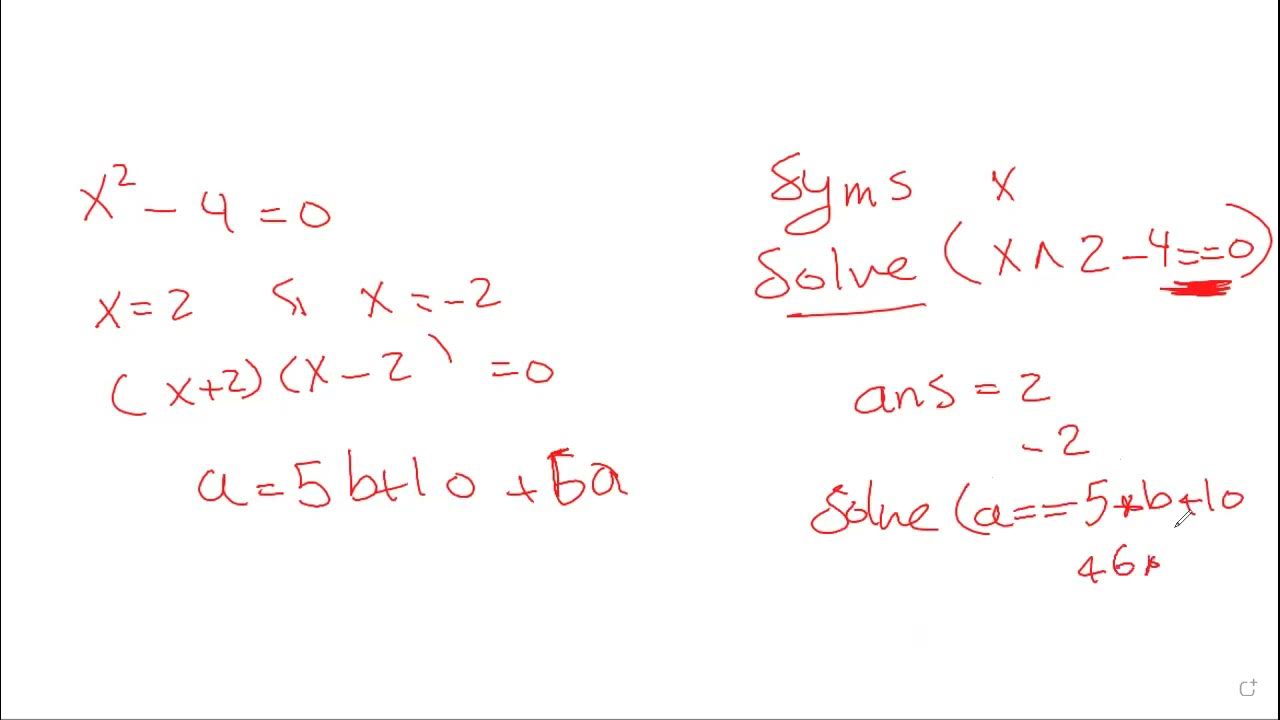 x² - 4 = 0
x = 2 & x = -2
(x+2)(x-2) = 0
a = 5b+10 + 6a
Syms x
Solve (x^2-4==0)
ans = 2
-2
Solve (a==5*b+10
+6*